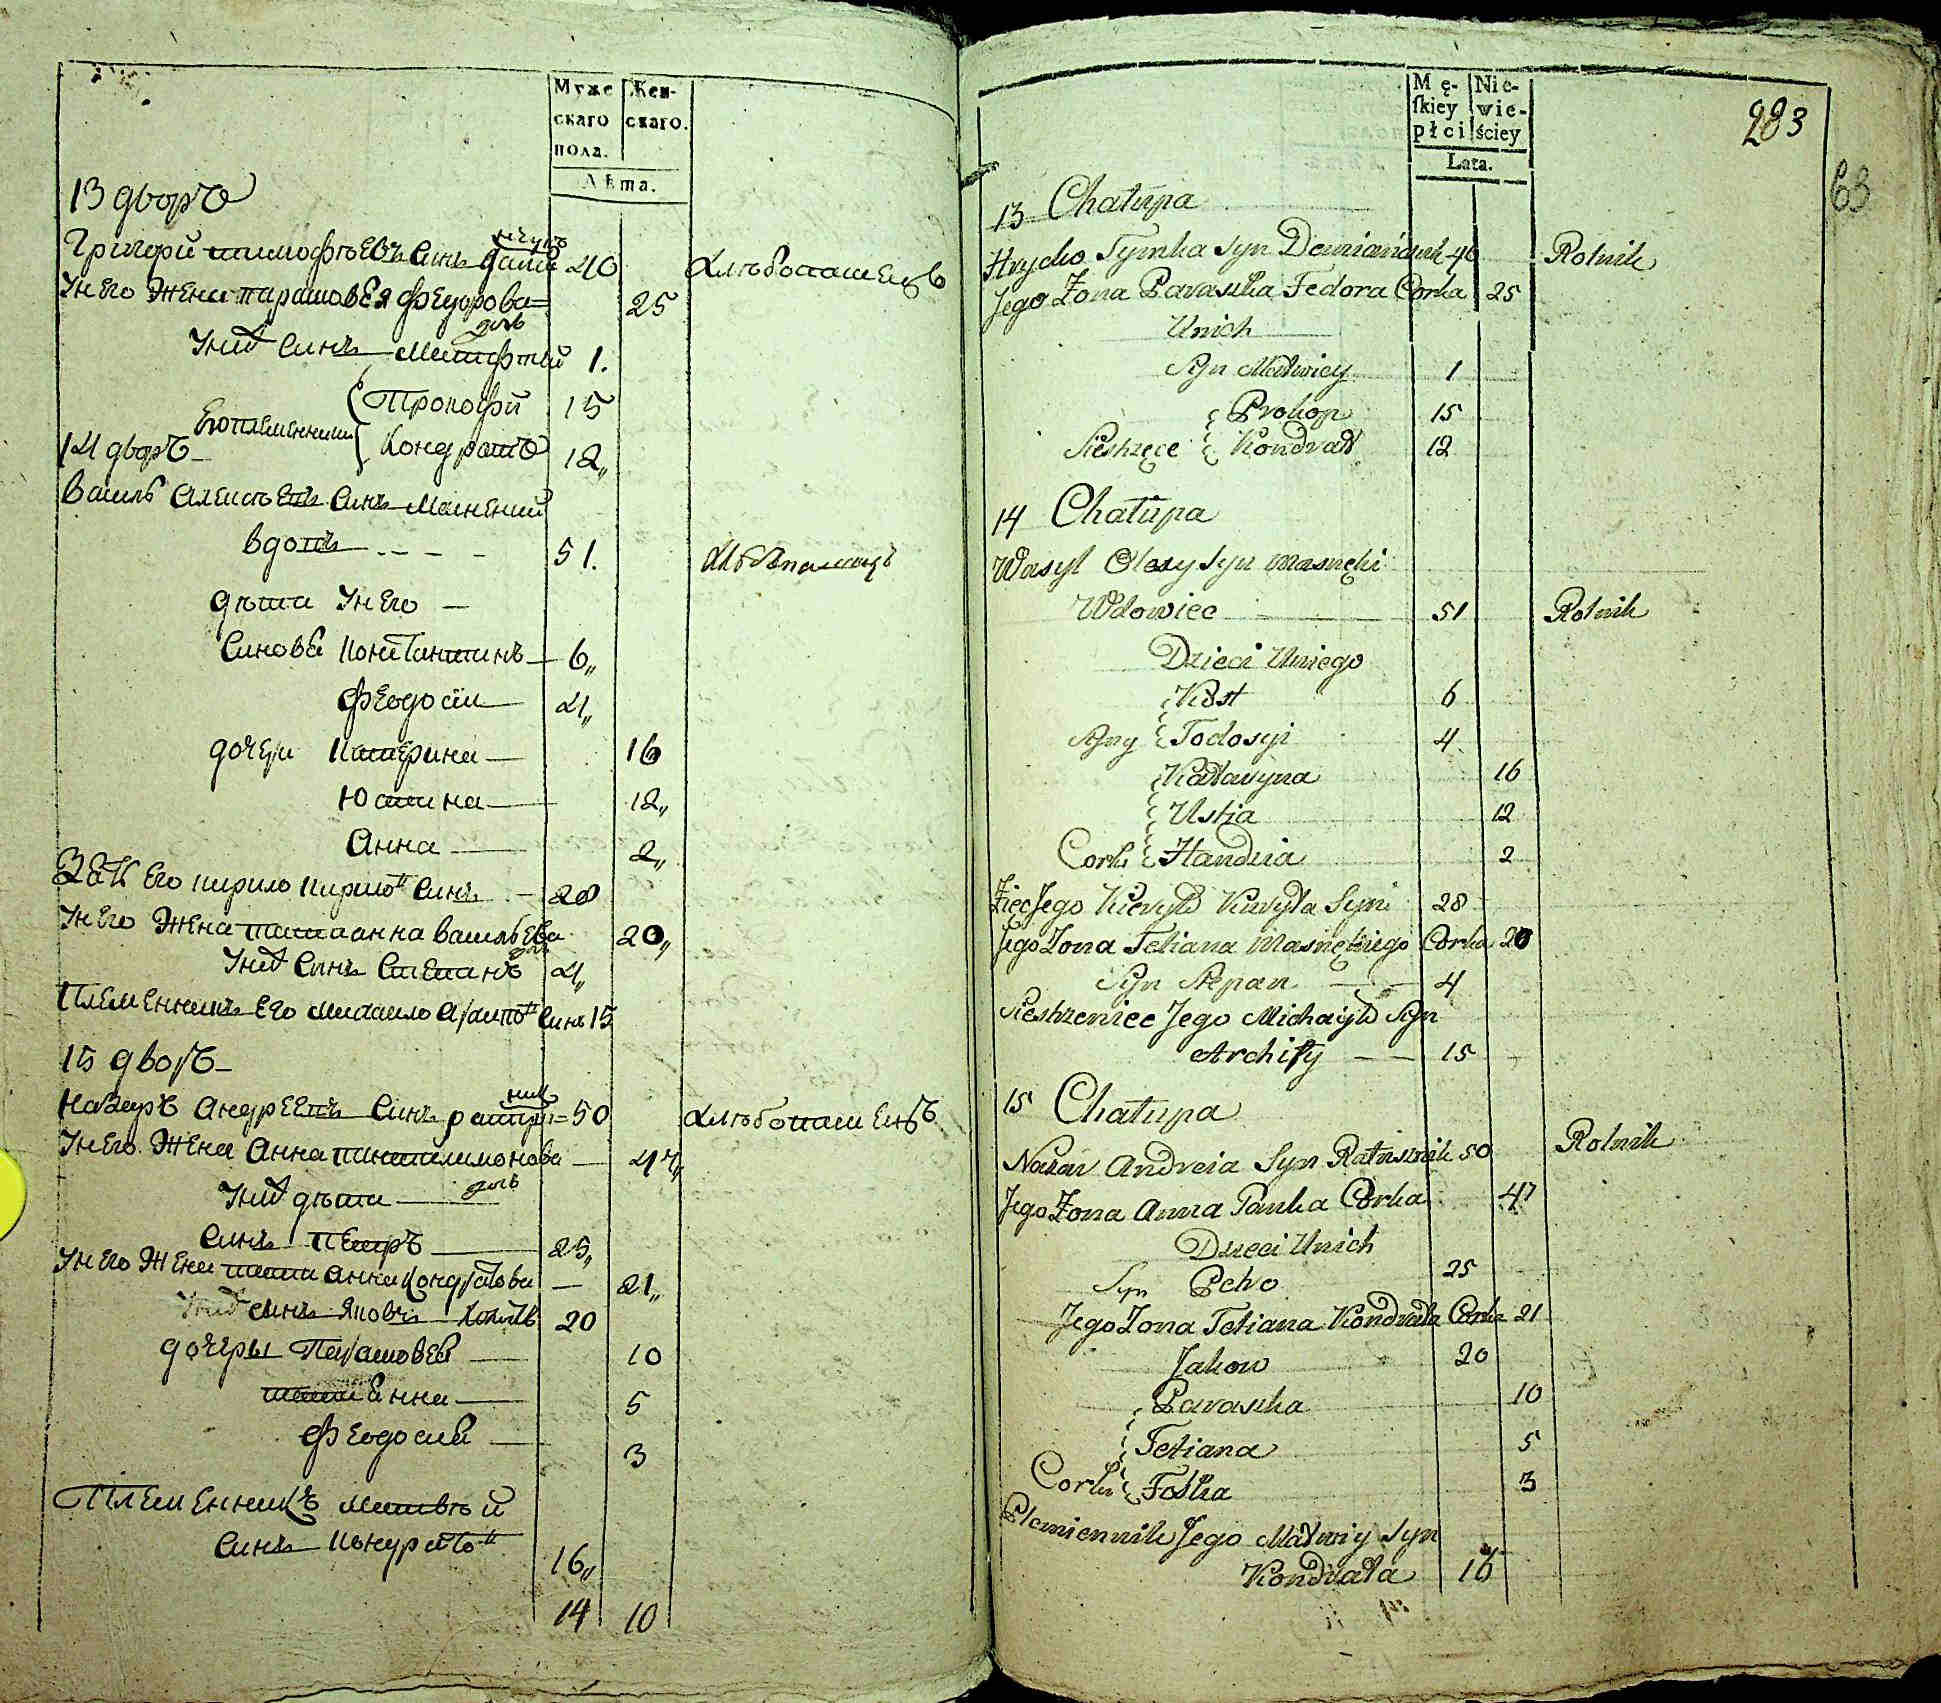 Муже
скаго
пола.
Жен-
скаго.
Лѣта.
13 дворъ
Григорй тимофѣевъ Синъ дами
нчукъ
40
Хлѣбопашецъ
Унего Жена парасковея федорова=
дочь
25
Унихъ Синъ Матфѣй 1.
Егоплеменники
Прокофй 15
Кондратъ 12„
14 дворъ
Василь Алексѣевъ Синъ Масненкий
вдовъ 51.
Хлѣбопашецъ
дѣти Унего
Синовя Константинъ 6„
Феодосій 4„
дочери Катерина 16
Юстина 12„
Анна 2„
Зять Его кирило кирилов Синъ 28
Унего Жена татіанна васильева
дочь
20„
Унихъ Синъ Степанъ 4„
Племенникъ Его михаило Архипов Синъ 15
15 дворъ
Назаръ Андреевъ Синъ ратуш=
ник
50
Хлѣбопашецъ
Унего Жена Анна пантилимонова
дочь
47„
Унихъ дѣти
Синъ Петръ 25„
Унего Жена татіанна Кондратова 21„
Унихъ синъ Яковъ 20
дочеры Парасковея 10
татіянна 5
Феодосия 3
Племенникъ Матвѣй
Синъ Кондратов 16„
14 10
Mę-
skiey
płci
Nie-
wie-
ściey
Lata.
283
63
13 Chałupa
Hrycko Tymka Syn Demianczuk 40 Rolnik
Jego Żona Paraska Fedora Corka 25
Unich
Syn Matwiey 1
Siestrzęce
Prokop 15
Kondrat 12
14 Chałupa
Wasyl Olexy Syn Masnęki
Wdowiec 51 Rolnik
Dzieci Uniego
Kost 6
Syny Todosyi 4
Kataryna 16
Ustia 12
Corki Handzia 2
Zięc Jego Kiryło Kiryła Syn 28
Jego Żona Tetiana Masnękiego Corka 20
Syn Stepan 4
Siestrzeniec Jego Michayło Syn
Archipy 15
15 Chałupa
Nazar Andreia Syn Ratusznik 50 Rolnik
Jego Żona Anna Panka Corka 47
Dzieci Unich
Syn Petro 25
Jego Żona Tetiana Kondrata Corka 21
Jakow 20
Paraska 10
Tetiana 5
Corki Foska 3
Plemiennik Jego Matwiy Syn
Kondrata 16